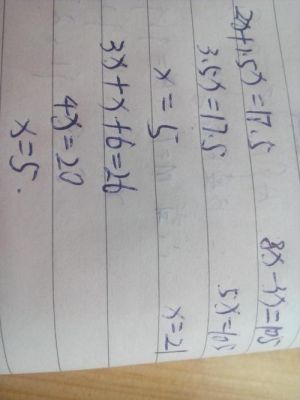 2x+1.5x=17.5
3.5x=17.5
x=5
3x+x+6=26
4x=20
x=5.
8x-3x=105
5x=105
x=21